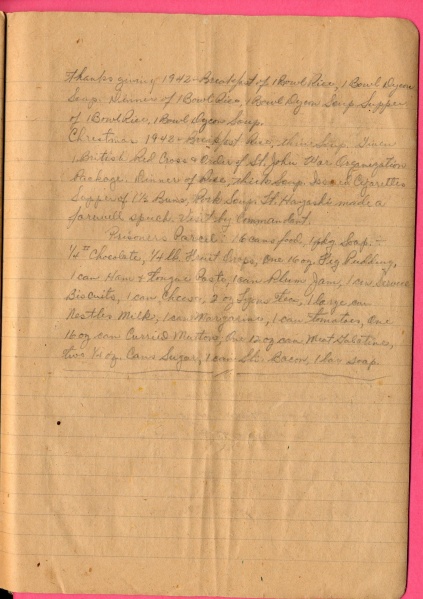 Thanksgiving 1942 - Breakfast of 1 Bowl Rice, 1 Bowl Dycon
Soup. Dinner of 1 Bowl Rice, 1 Bowl Dycon Soup. Supper
of 1 Bowl Rice, 1 Bowl Dycon Soup.
Christmas 1942 - Breakfast Rice, thin Soup. Given
1 British Red Cross & Order of St. John War Organization
Package. Dinner of Rice, thick Soup. Issued Cigarettes
Supper of 1½ Buns, Pork Soup. Lt. Hayashi made a
farewell speech. Visit by Commandant.
Prisoners Parcel: 16 cans food, 1 pkg Soap. -
¼ # Chocolate, ¼ lb. Fruit Drops, one 16 oz. Fig Pudding,
1 can Ham & Tongue Paste, 1 can Plum Jam, 1 can Service
Biscuits, 1 can Cheese, 2 oz Lyons Tea, 1 large can
Nestles Milk, 1 can Margarine, 1 can tomatoes, One
16 oz can Curried Mutton, One 12 oz can Meat Galatine,
two ¼ oz. Cans Sugar, 1 can Bacon, 1 bar soap.